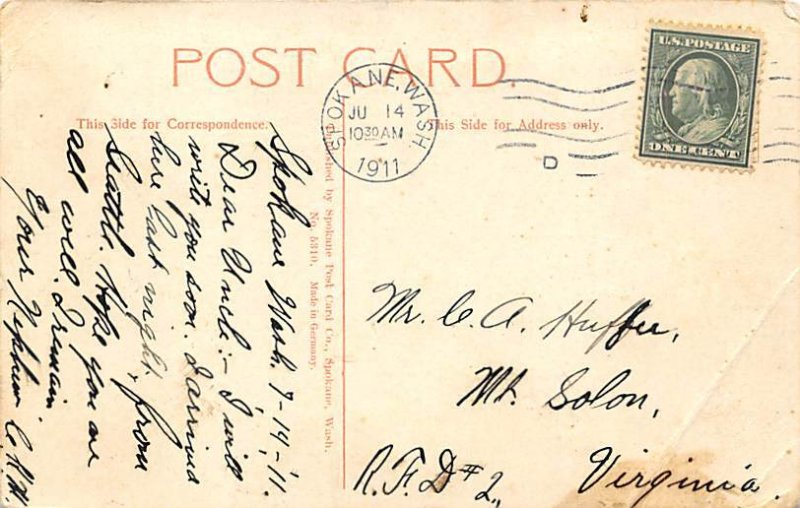 POST CARD.
This Side for Correspondence.
This Side for Address only.
SPOKANE, WASH
JU 14
10 30 AM
1911
D
U.S. POSTAGE
ONE CENT
Spokane Wash. 7-14-'11.
Dear Uncle:- I will
write you soon. I arrived
here last night from
Seattle. Hope you are
all well. I remain
Your Nephew C.R.H.
Published by Spokane Post Card Co., Spokane, Wash.
No. 5310. Made in Germany.
Mr. C. A. Huffer,
Mt. Solon,
R.F.D # 2., Virginia.